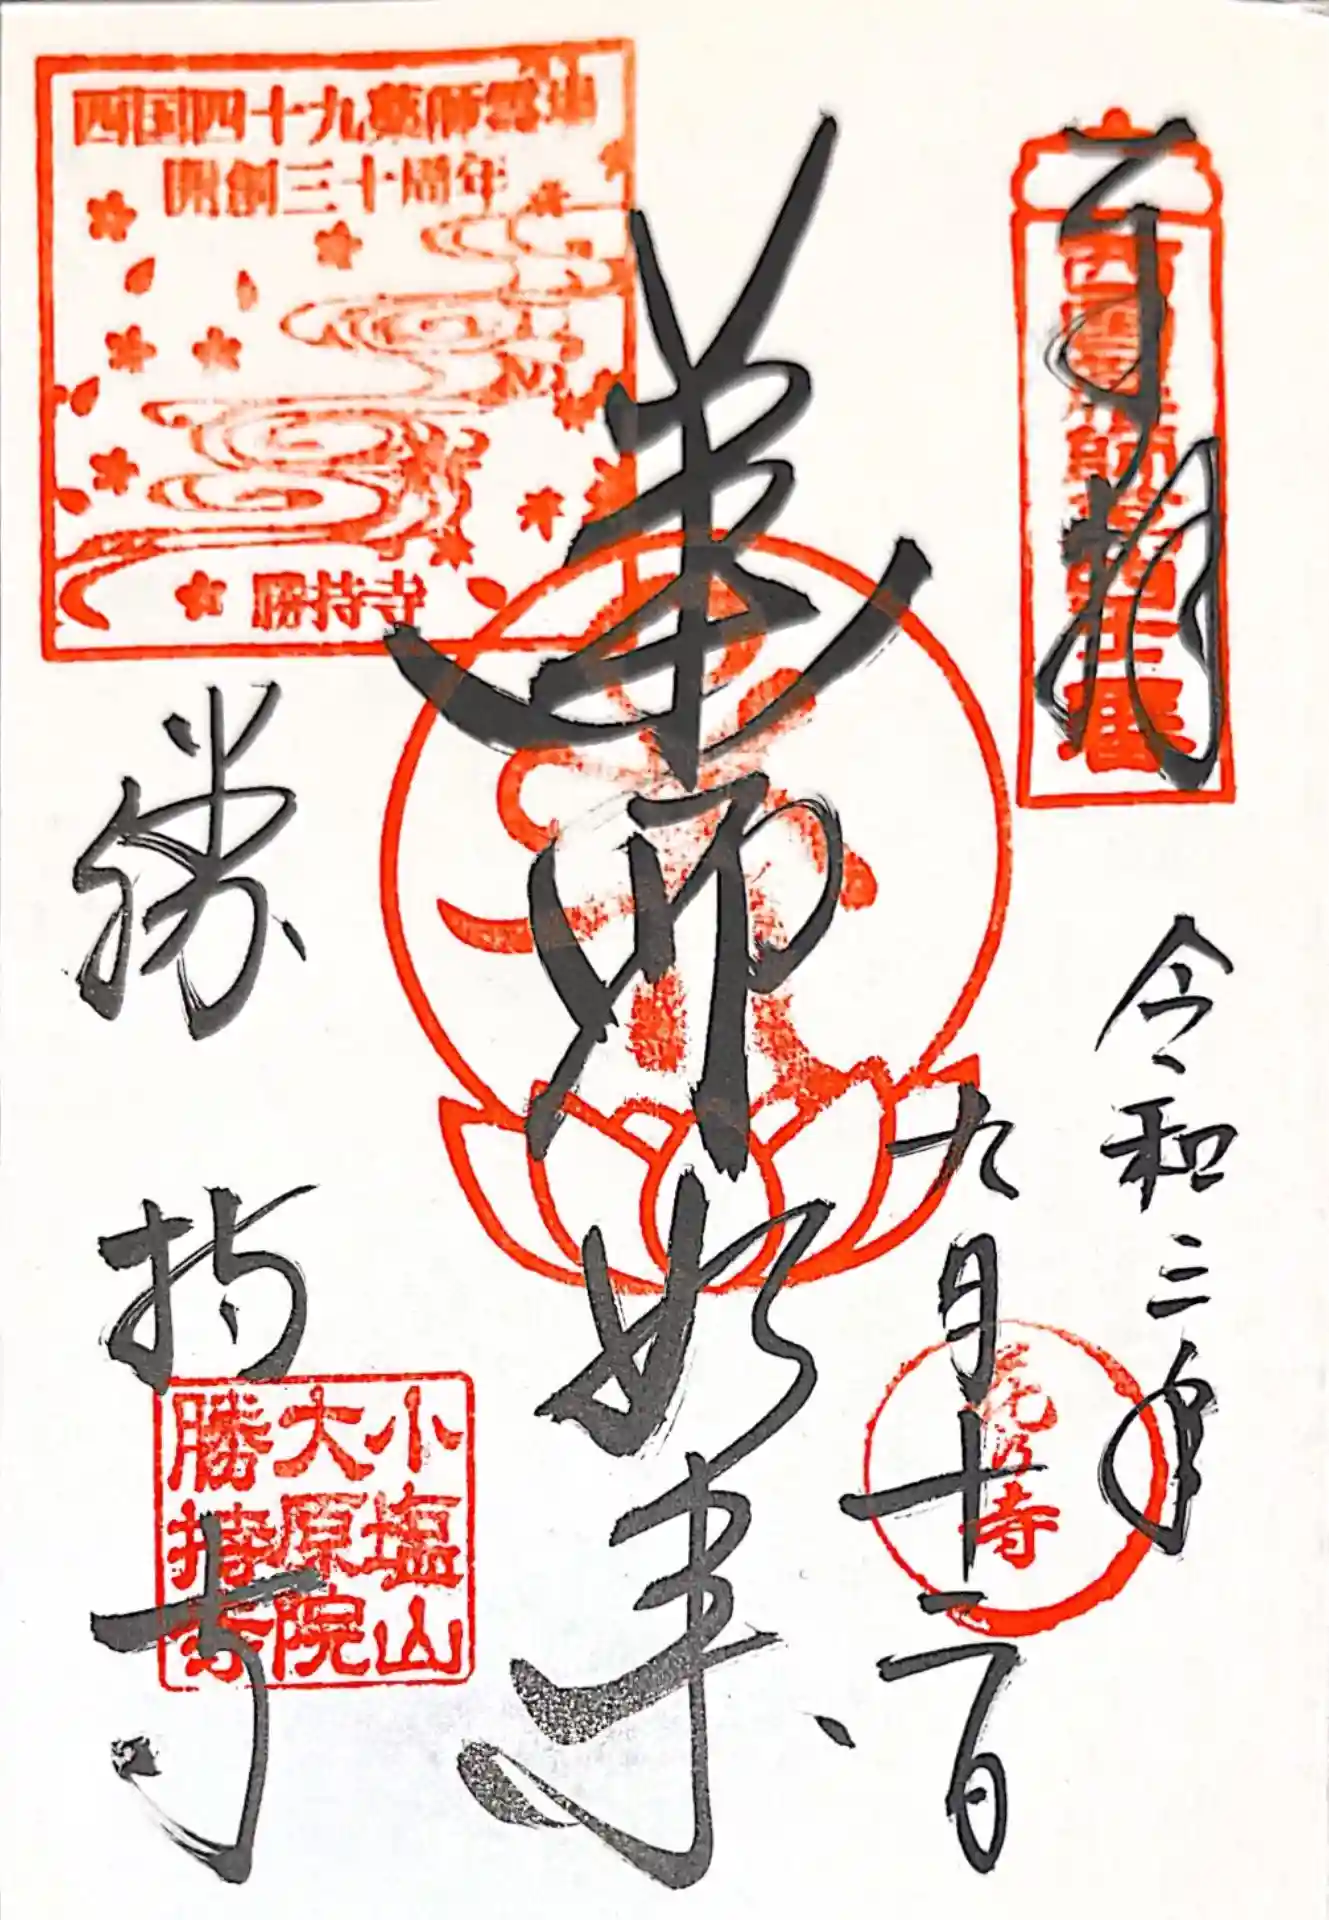 奉拝
西国薬師第四十二番
令和三年
九月十二日
花の寺
薬師如来
西国四十九薬師霊場
開創三十周年
勝持寺
勝持寺
小塩山
大原院
勝持寺